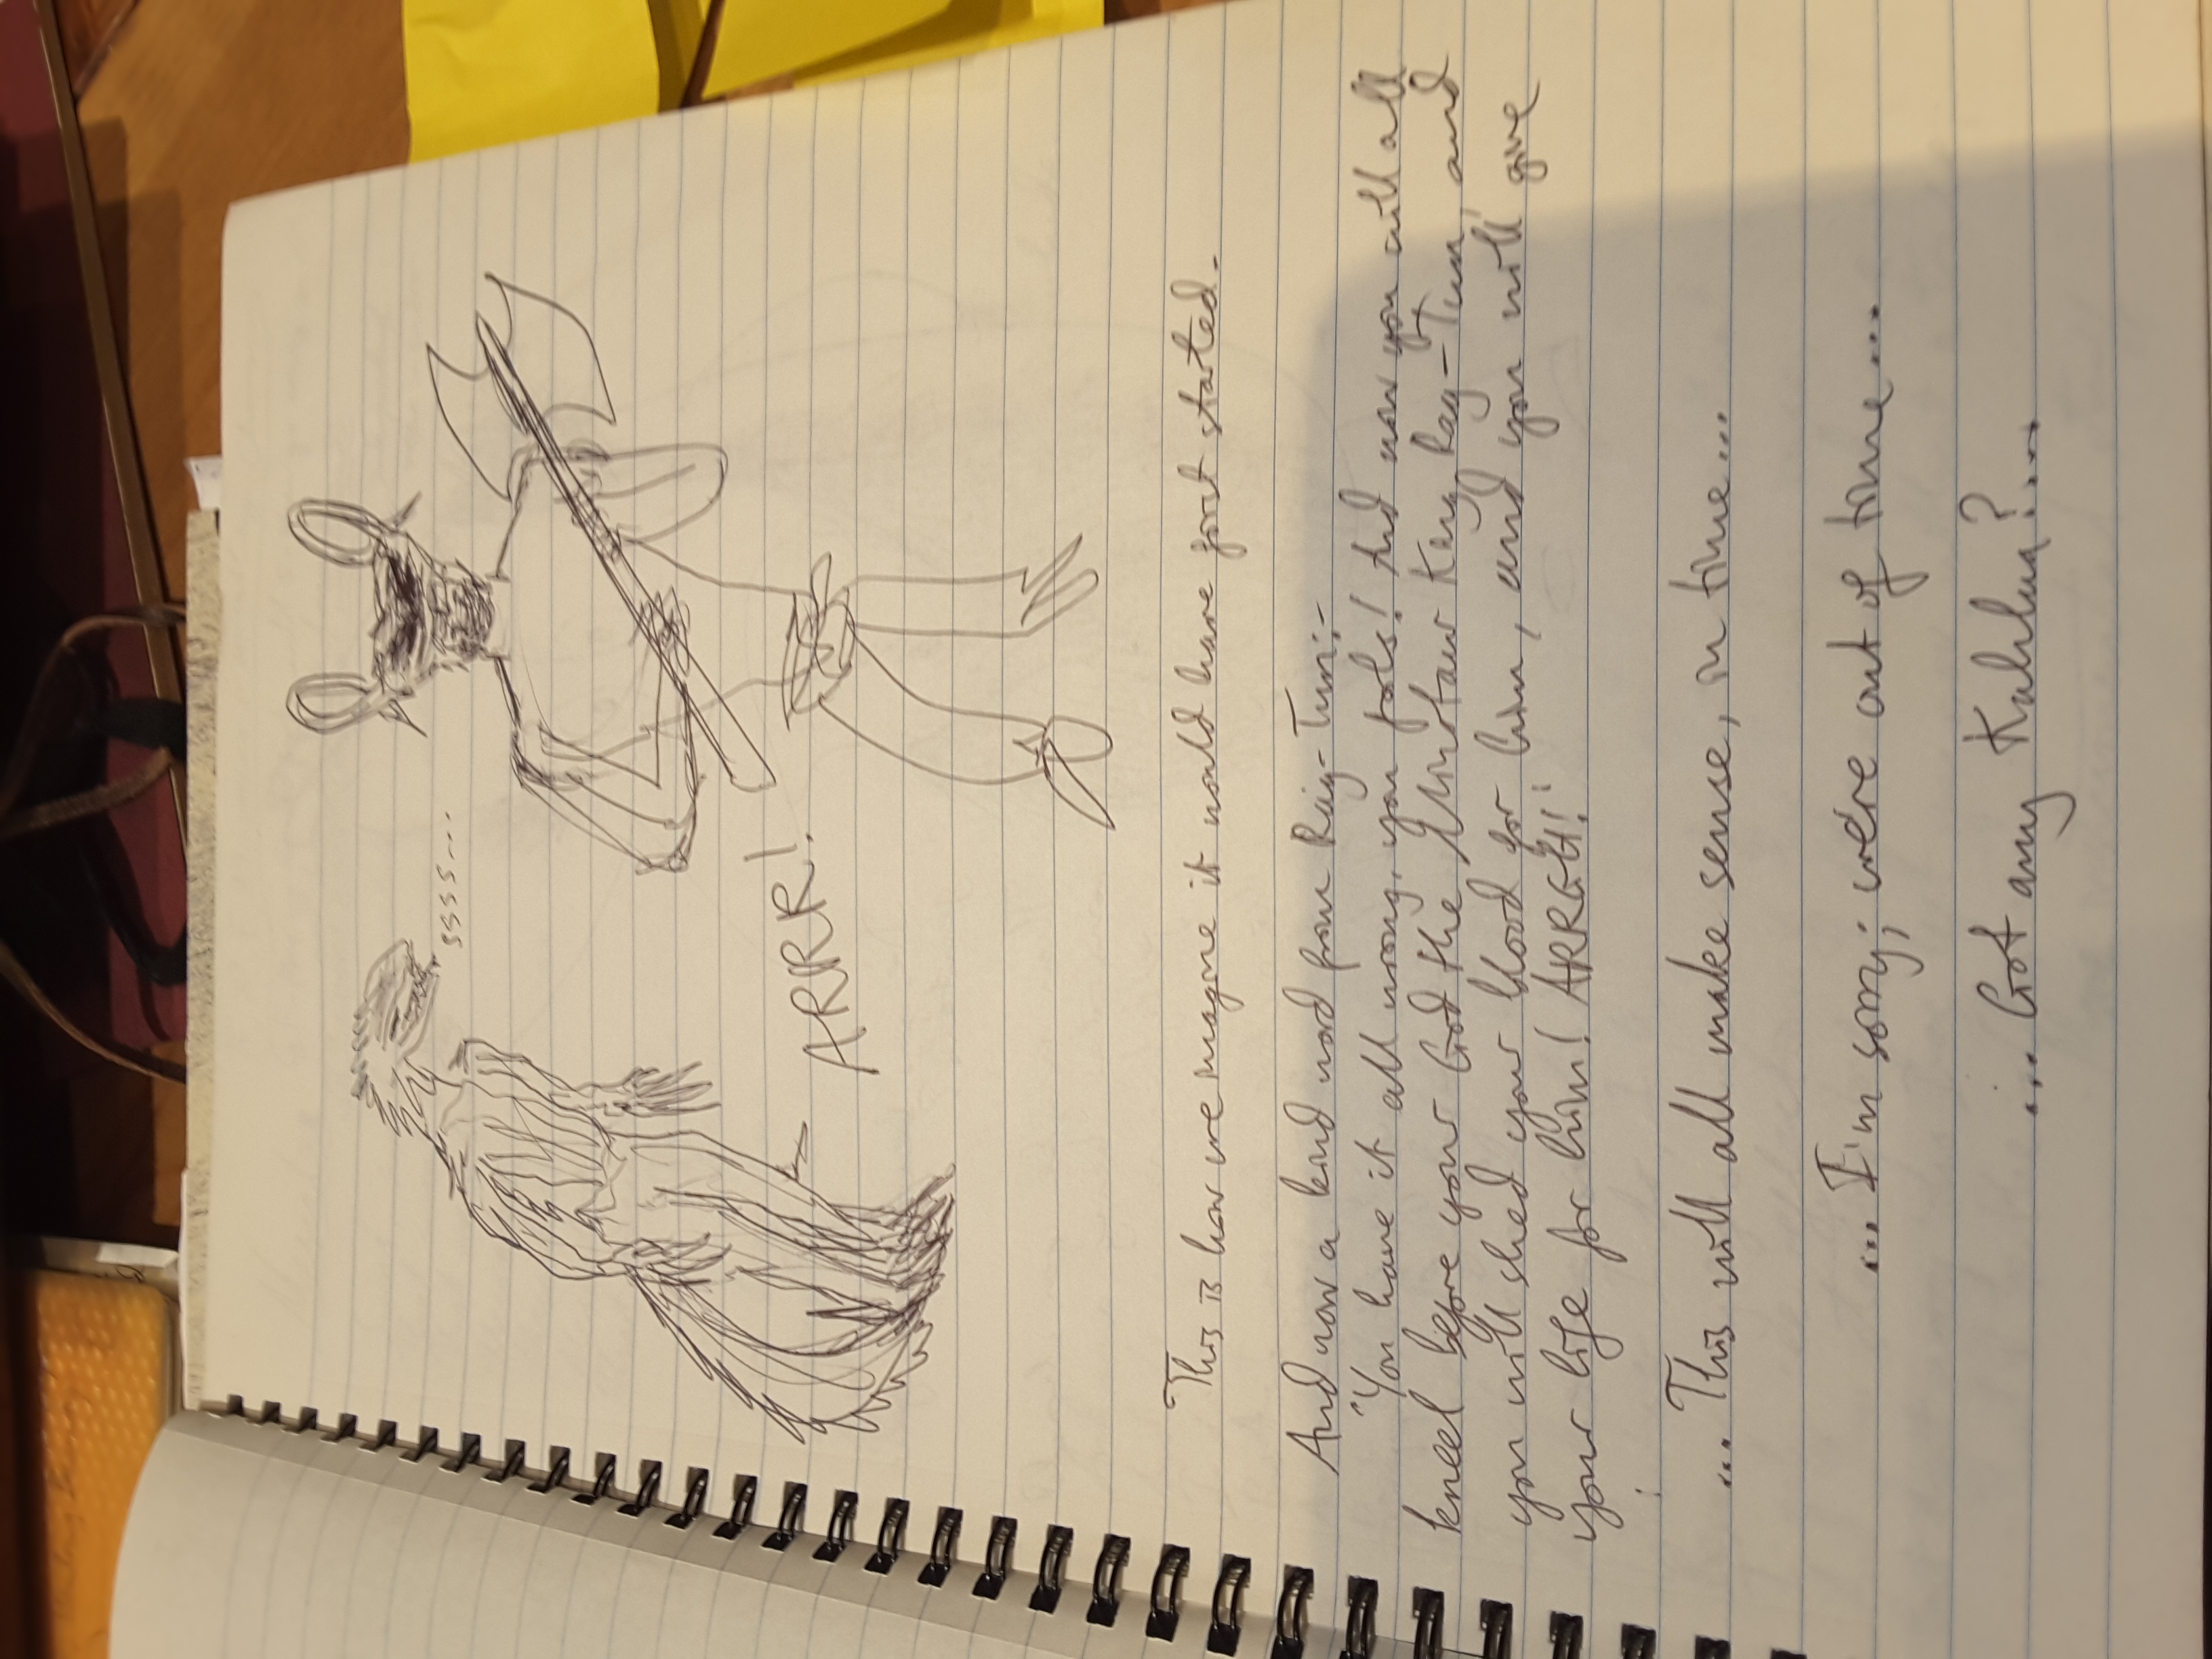 ssss...
ARRR!
This is how we imagine it would have first started.
And now a kind word from Rag-Tum:-
"You have it all wrong, you fools! And now you will all
kneel before your God the Minotaur King, Rag-Tum, and
you will shed your blood for him, and you will give
your life for him! ARRGH!"
... This will all make sense, in time...
... I'm sorry; we're out of time...
... Got any Kahlua?...